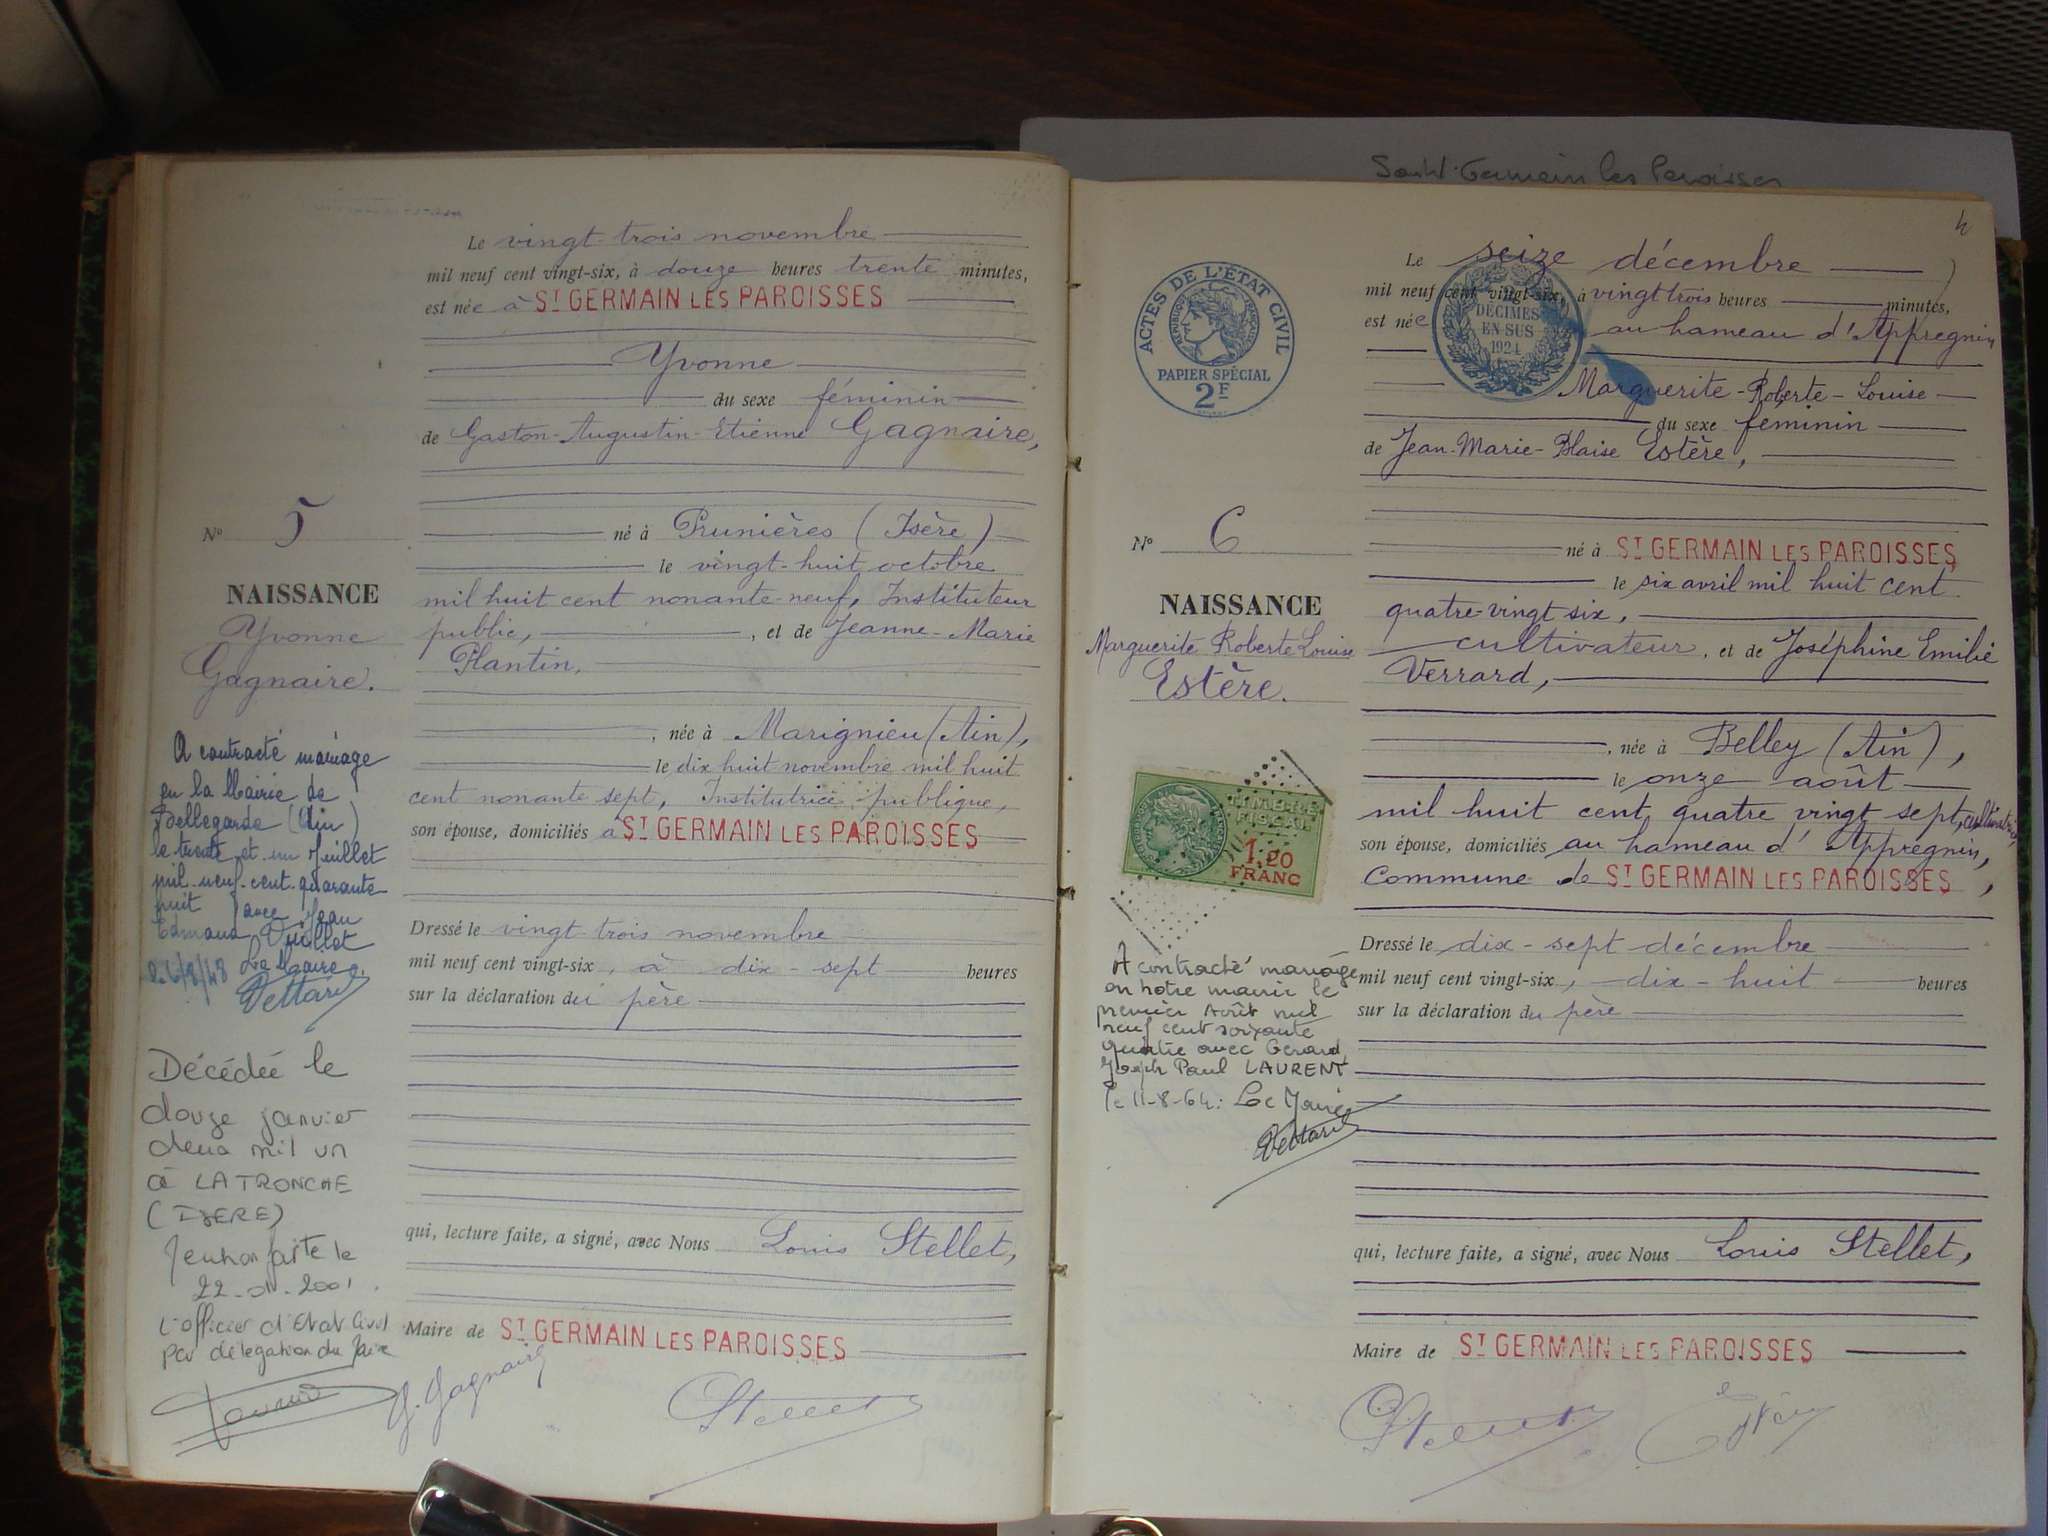 Saint-Germain les Paroisses
Le vingt-trois novembre
mil neuf cent vingt-six, à douze heures trente minutes,
est née à ST GERMAIN LES PAROISSES
Yvonne
du sexe féminin
de Gaston-Augustin-Etienne Gagnaire,
né à Prunières (Isère)
le vingt-huit octobre
mil huit cent nonante-neuf, Instituteur
public, , et de Jeanne-Marie
Plantin,
, née à Marignieu (Ain),
le dix huit novembre mil huit
cent nonante sept, Institutrice publique,
son épouse, domiciliés à ST GERMAIN LES PAROISSES
Dressé le vingt-trois novembre
mil neuf cent vingt-six, à dix-sept heures
sur la déclaration du père
qui, lecture faite, a signé, avec Nous Louis Stellet,
Maire de ST GERMAIN LES PAROISSES
G. Gagnaire Stellet
No 5
NAISSANCE
Yvonne
Gagnaire.
A contracté mariage
en la Mairie de
Bellegarde (Ain)
le trente et un Juillet
mil neuf cent quarante
huit avec Jean
Edmond Vuillet
Le Maire
26/8/48
Décédée le
douze janvier
deux mil un
à LA TRONCHE
(ISERE)
Mention faite le
22-01-2001.
L'officier d'Etat Civil
par délégation du Maire
4
Le seize décembre
mil neuf cent vingt-six, à vingt trois heures minutes,
est née au hameau d'Appregnin
Marguerite-Roberte-Louise
du sexe féminin
de Jean-Marie-Blaise Estère,
né à ST GERMAIN LES PAROISSES
le six avril mil huit cent
quatre-vingt six,
cultivateur, et de Joséphine Emilie
Verrard,
, née à Belley (Ain),
le onze août
mil huit cent quatre vingt sept, cultivatrice,
son épouse, domiciliés au hameau d'Appregnin,
commune de ST GERMAIN LES PAROISSES,
Dressé le dix-sept décembre
mil neuf cent vingt-six, dix-huit heures
sur la déclaration du père
qui, lecture faite, a signé, avec Nous Louis Stellet,
Maire de ST GERMAIN LES PAROISSES
Stellet Estère
ACTES DE L'ÉTAT CIVIL
PAPIER SPÉCIAL
2F
DÉCIMES
EN SUS
1924
No 6
NAISSANCE
Marguerite Roberte Louise
Estère.
TIMBRE
FISCAL
1,20
FRANC
A contracté mariage
en notre mairie le
premier Août mil
neuf cent soixante
quatre avec Gerard
Joseph Paul LAURENT
le 11-8-64: Le Maire